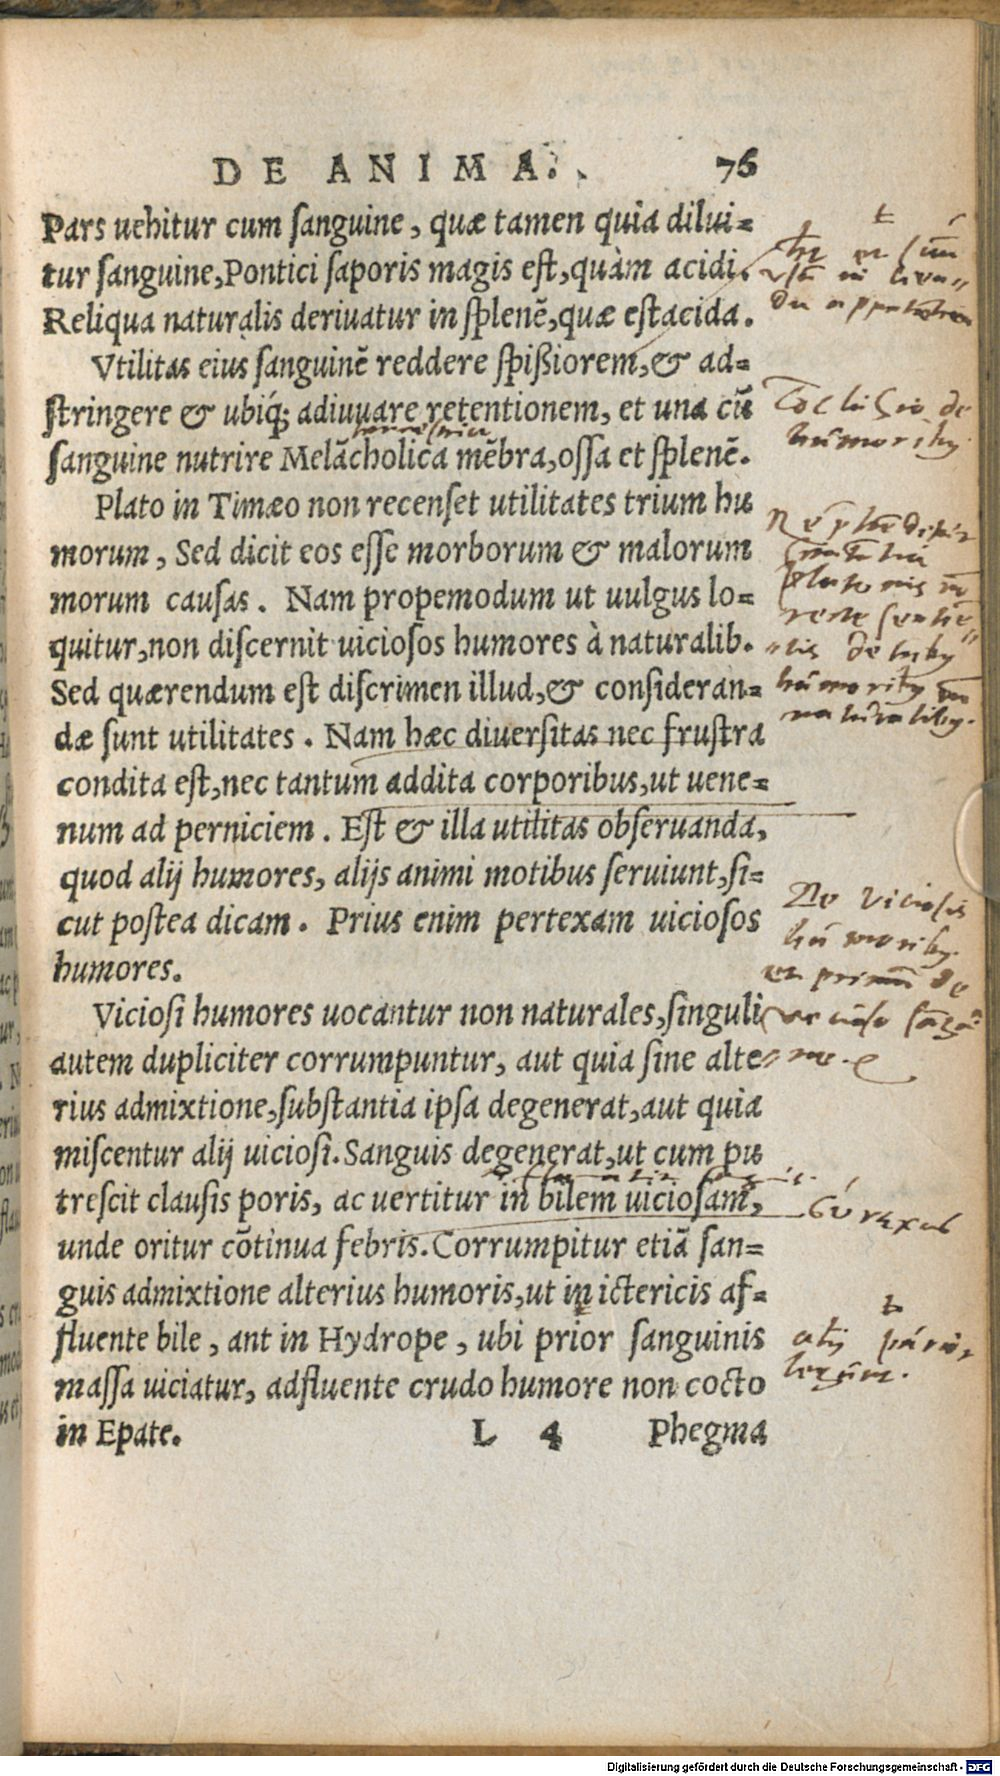 DE ANIMA. 76
Pars uehitur cum sanguine, quæ tamen quia dilui=
tur sanguine, Pontici saporis magis est, quàm acidi.
Reliqua naturalis deriuatur in splenẽ, quæ est acida.
Vtilitas eius sanguinẽ reddere spißiorem, & ad=
stringere & ubiq́; adiuuare retentionem, et una cũ
sanguine nutrire Melãcholica mẽbra, ossa et splenẽ.
Plato in Timæo non recenset utilitates trium hu
morum, Sed dicit eos esse morborum & malorum
morum causas. Nam propemodum ut uulgus lo=
quitur, non discernit uiciosos humores à naturalib.
Sed quærendum est discrimen illud, & consideran=
dæ sunt utilitates. Nam hæc diuersitas nec frustra
condita est, nec tantum addita corporibus, ut uene=
num ad perniciem. Est & illa utilitas obseruanda,
quod alij humores, alijs animi motibus seruiunt, si=
cut postea dicam. Prius enim pertexam uiciosos
humores.
Viciosi humores uocantur non naturales, singuli
autem dupliciter corrumpuntur, aut quia sine alte
rius admixtione, substantia ipsa degenerat, aut quia
miscentur alij uiciosi. Sanguis degenerat, ut cum pu
trescit clausis poris, ac uertitur in bilem uiciosam,
unde oritur cõtinua febris. Corrumpitur etiã san=
guis admixtione alterius humoris, ut in ictericis af=
fluente bile, ant in Hydrope, ubi prior sanguinis
massa uiciatur, adfluente crudo humore non cocto
in Epate.
L 4 Phegma
De viciosis
Digitalisierung gefördert durch die Deutsche Forschungsgemeinschaft - DFG